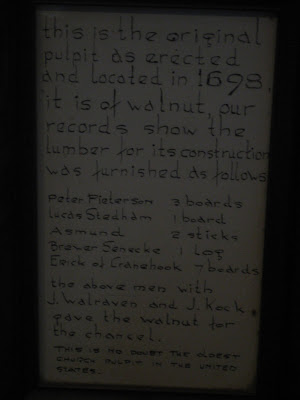 this is the original
pulpit as erected
and located in 1698.
it is of walnut, our
records show the
lumber for its construction
was furnished as follows
Peter Pieterson 3 boards
Lucas Stedham 1 board
Asmund 2 sticks
Brewer Senecke 1 log
Erick of Cranehook 7 boards
the above men with
J. Walraven and J. Kock
gave the walnut for
the chancel.
THIS IS NO DOUBT THE OLDEST
CHURCH PULPIT IN THE UNITED
STATES.